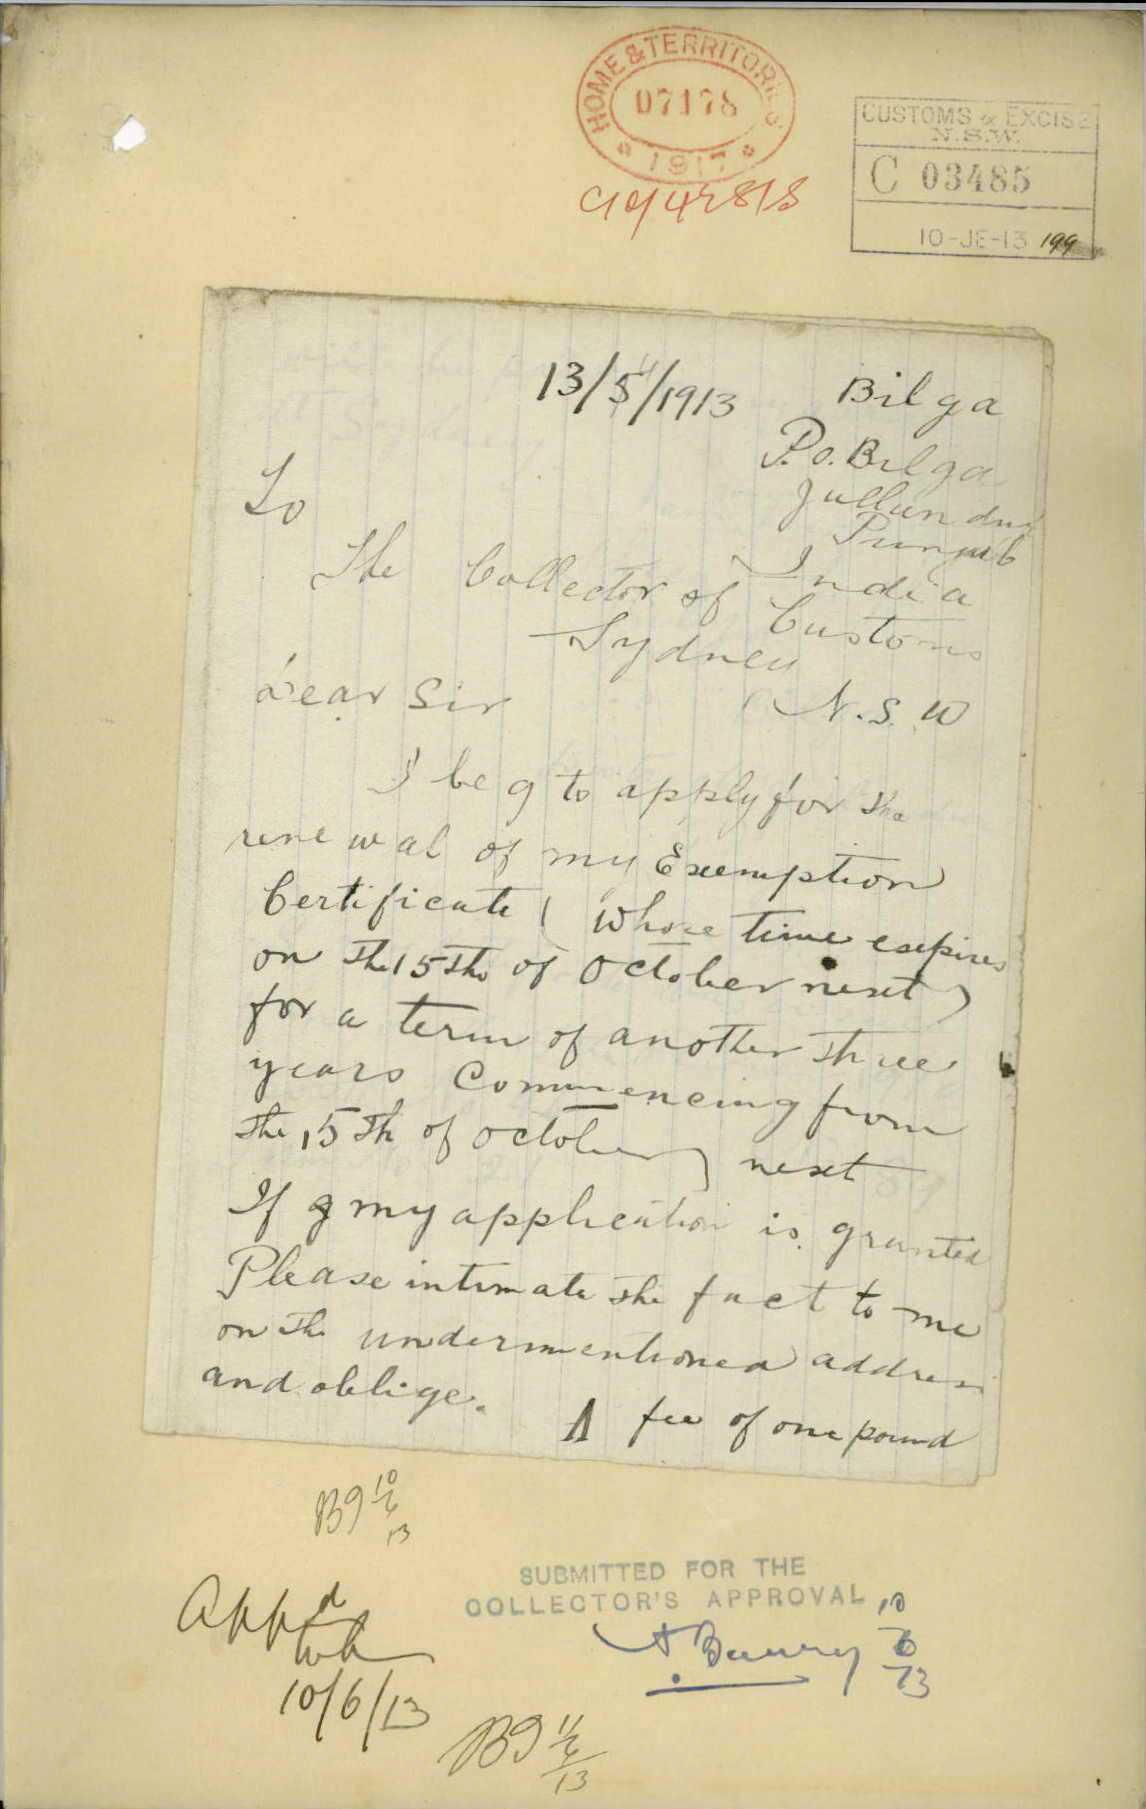 HOME & TERRITORIES
07178
* 1917 *
CUSTOMS & EXCISE
N.S.W.
C 03485
10-JE-13 199
13/5/1913 Bilga
P.O. Bilga
Jullundur
Punjab
India
To
The Collector of Customs
Sydney
N.S.W
Dear Sir
I beg to apply for the
renewal of my Exemption
Certificate ( whose time expires
on the 15th of October next )
for a term of another three
years Commencing from
the 15th of October next
If my application is granted
Please intimate the fact to me
on the undermentioned address
and oblige. A fee of one pound
SUBMITTED FOR THE
COLLECTOR'S APPROVAL
10
6
13
Appd
10/6/13
11
6
13